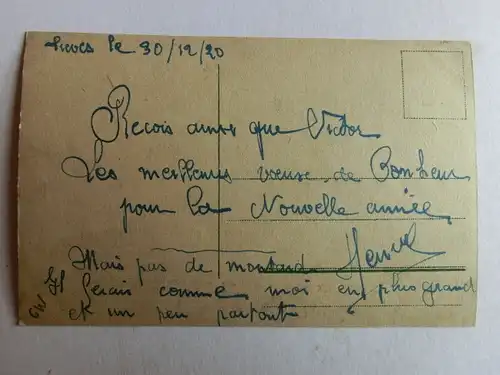 le 30/12/20
Recois ainsi que Victor
Les meilleurs vœux de Bonheur
pour la Nouvelle année
Mais pas de moutard
serais comme moi en plus grand
et un peu partout